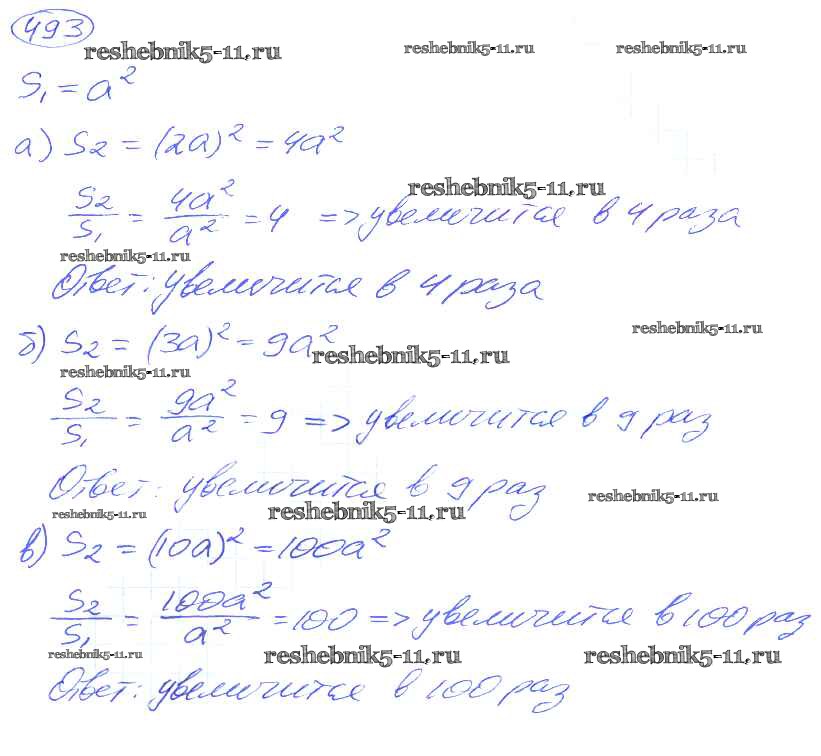 493
reshebnik5-11.ru reshebnik5-11.ru reshebnik5-11.ru
S₁ = a²
а) S₂ = (2a)² = 4a²
reshebnik5-11.ru
S₂/S₁ = 4a²/a² = 4 => увеличится в 4 раза
reshebnik5-11.ru
Ответ: увеличится в 4 раза
reshebnik5-11.ru
б) S₂ = (3a)² = 9a²
reshebnik5-11.ru
reshebnik5-11.ru
S₂/S₁ = 9a²/a² = 9 => увеличится в 9 раз
Ответ: увеличится в 9 раз
reshebnik5-11.ru
reshebnik5-11.ru reshebnik5-11.ru
в) S₂ = (10a)² = 100a²
S₂/S₁ = 100a²/a² = 100 => увеличится в 100 раз
reshebnik5-11.ru reshebnik5-11.ru reshebnik5-11.ru
Ответ: увеличится в 100 раз